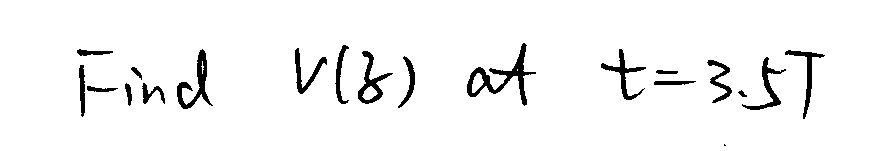 Find V(z) at t=3.5T